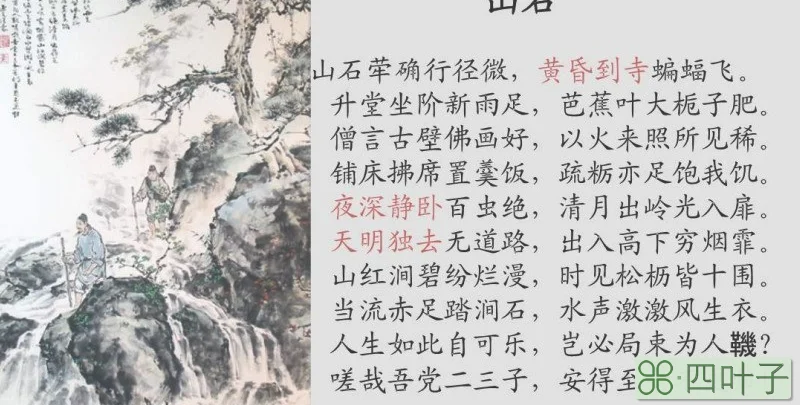 山石
山石荦确行径微，黄昏到寺蝙蝠飞。
升堂坐阶新雨足，芭蕉叶大栀子肥。
僧言古壁佛画好，以火来照所见稀。
铺床拂席置羹饭，疏粝亦足饱我饥。
夜深静卧百虫绝，清月出岭光入扉。
天明独去无道路，出入高下穷烟霏。
山红涧碧纷烂漫，时见松枥皆十围。
当流赤足踏涧石，水声激激风生衣。
人生如此自可乐，岂必局束为人鞿？
嗟哉吾党二三子，安得至
四叶子